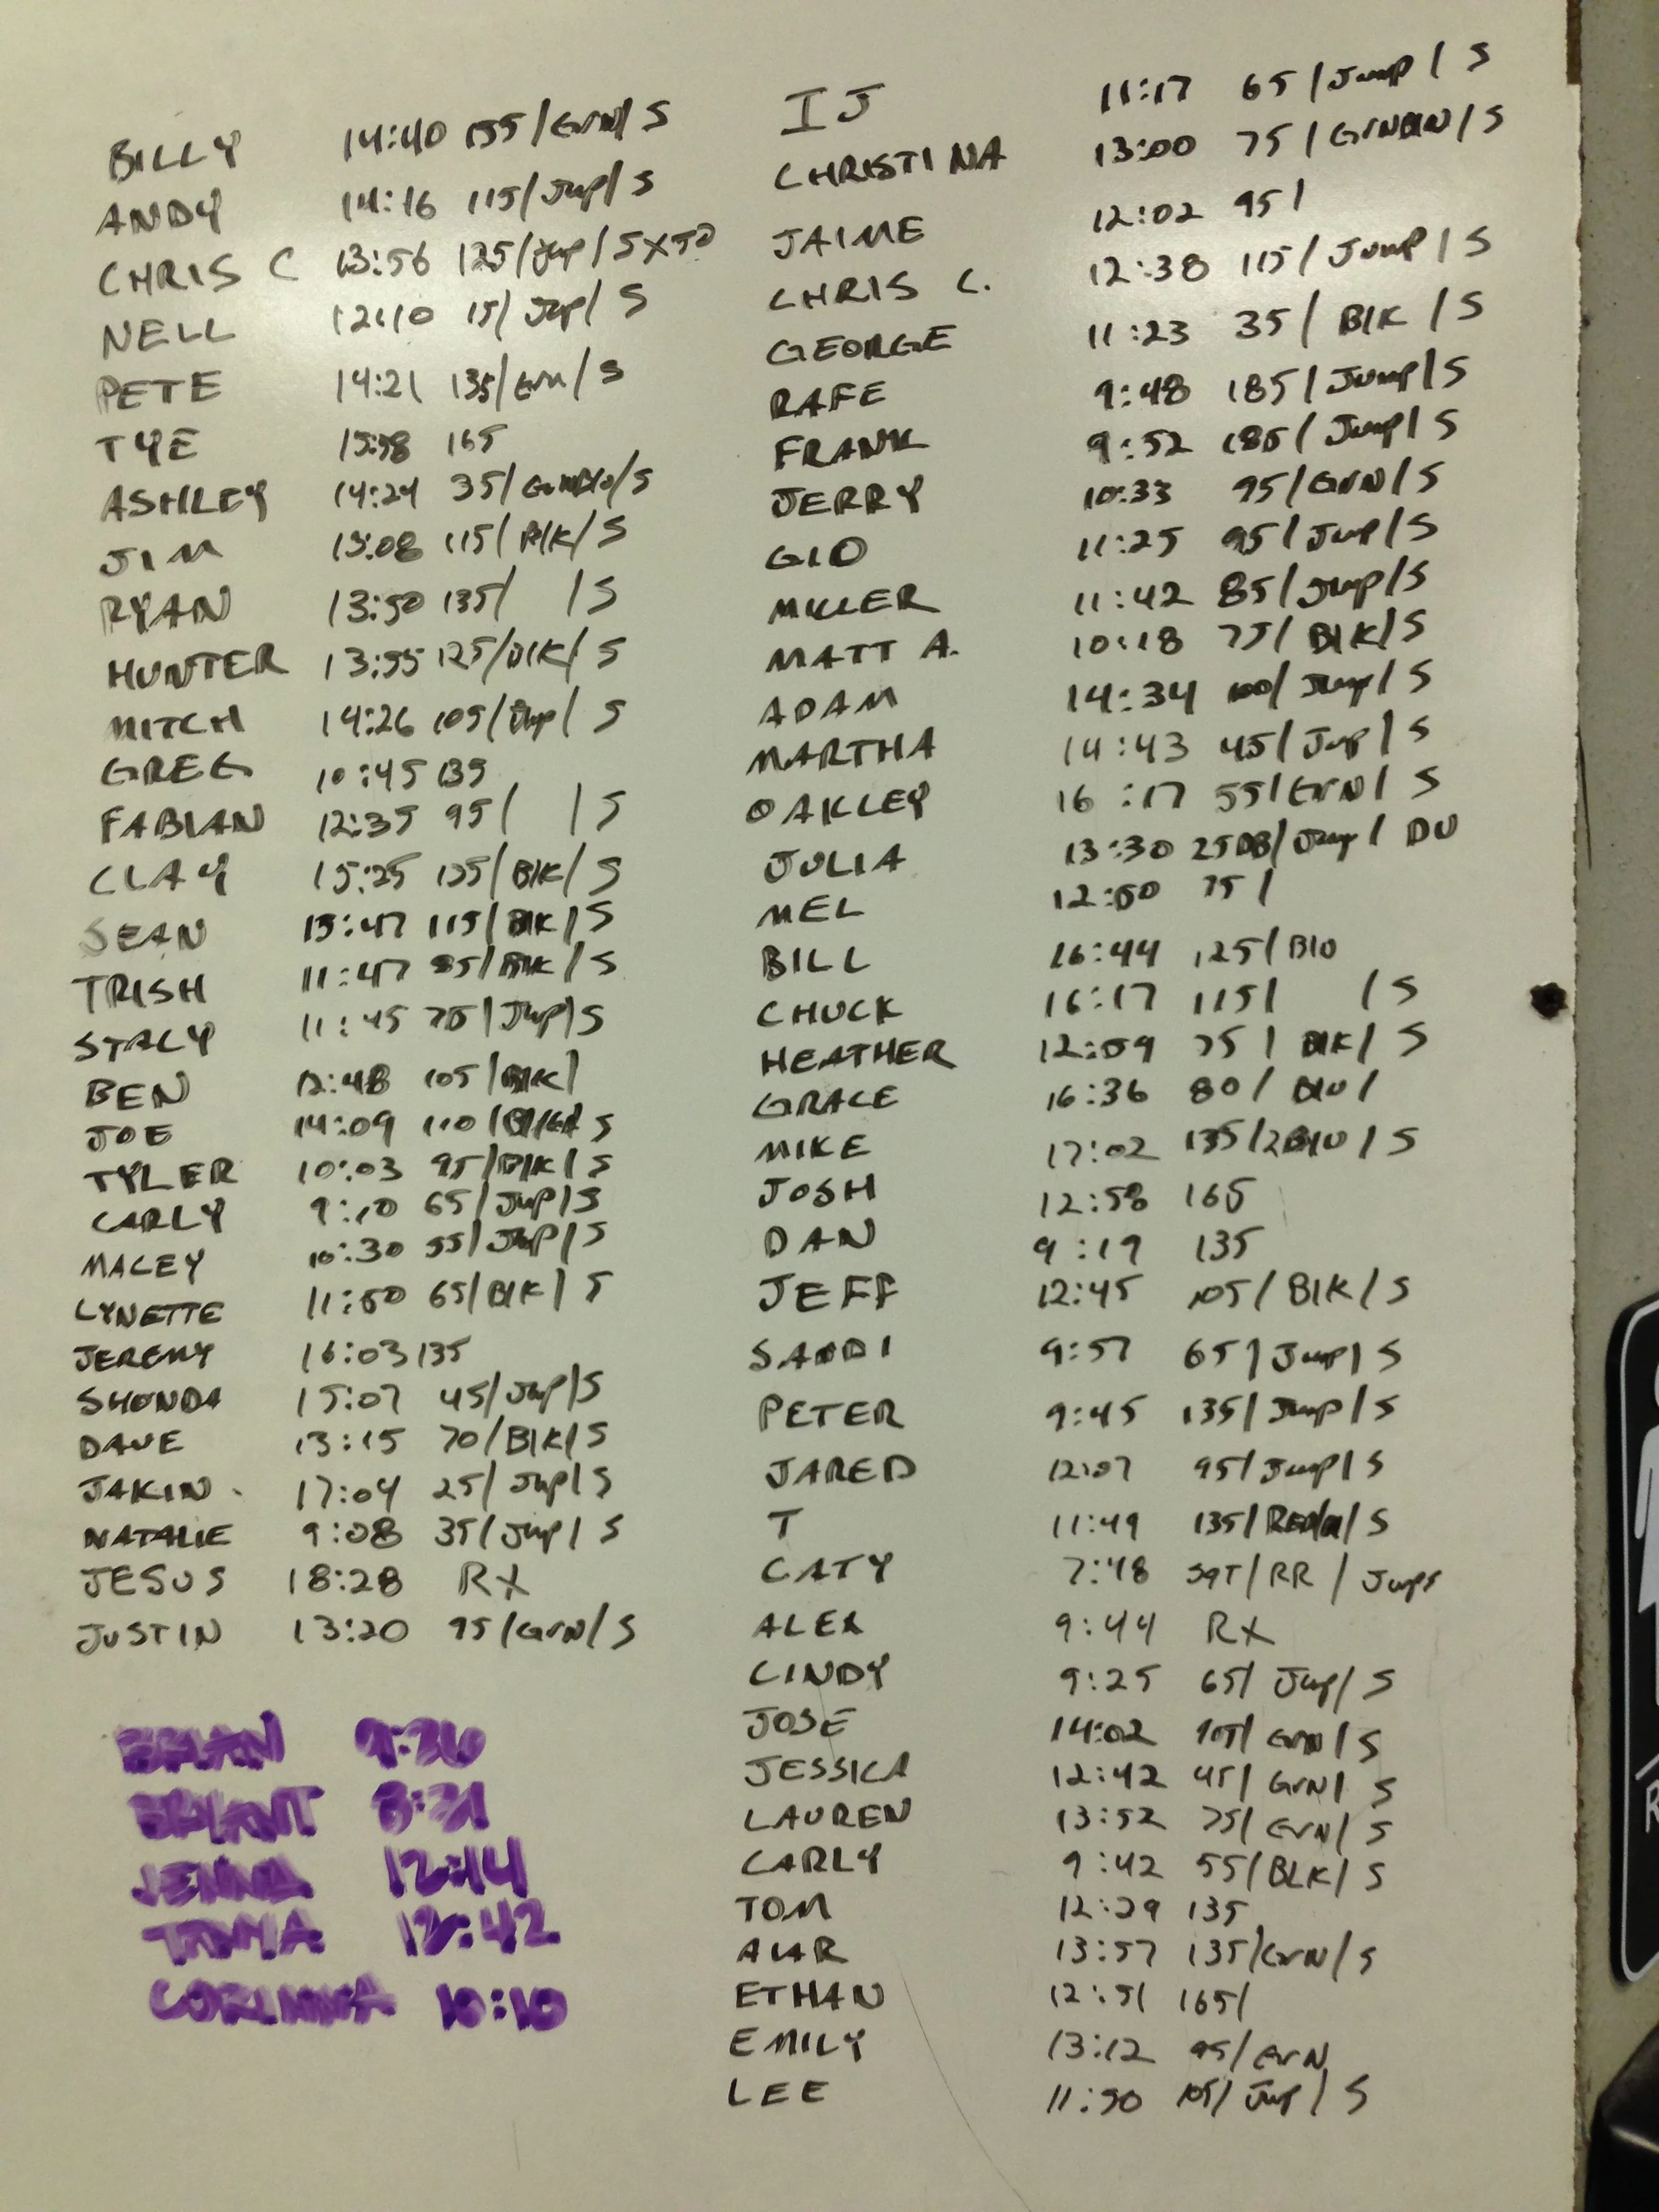 BILLY 14:40 155/GrN/S
ANDY 14:16 115/Jup/S
CHRIS C 13:56 125/Jup/S
NELL 12:10 15/Jup/S
PETE 14:21 135/Grn/S
TYE 165
ASHLEY 14:24 35/
JIM 115/Blk/S
RYAN 13:50 135/ /S
HUNTER 13:55 125/Blk/S
MITCH 14:26 105/Jup/S
GREG 10:45 135
FABIAN 12:35 95/ /S
CLAY 15:25 135/Blk/S
SEAN 115/Blk/S
TRISH 11:47 /S
STACY 11:45 /Jup/S
BEN 12:48 105/Blk/
JOE 14:09 110/ S
TYLER 10:03 95/Blk/S
CARLY 9:10 65/Jup/S
MACEY 10:30 55/Jup/S
LYNETTE 11:50 65/Blk/S
JEREMY 16:03 135
SHONDA 15:07 45/Jup/S
DAVE 13:15 70/Blk/S
JAKIN 17:04 25/Jup/S
NATALIE 9:08 35/Jup/S
JESUS 18:28 RX
JUSTIN 13:20 95/GrN/S
BRIAN 9:36
BRYANT 8:31
JENNA 12:14
TONYA :42
CORINNNA 10:10
IJ 11:17 65/Jump/S
CHRISTINA 13:00 75/
JAIME 12:02 95/
CHRIS C. 12:38 115/Jump/S
GEORGE 11:23 35/Blk/S
RAFE 9:48 185/Jump/S
FRANK 9:52 185/Jump/S
JERRY 10:33 95/GrN/S
GIO 11:25 95/Jup/S
MILLER 11:42 85/Jup/S
MATT A. 10:18 75/Blk/S
ADAM 14:34 100/Jump/S
MARTHA 14:43 45/Jup/S
OAKLEY 16:17 55/GrN/S
JULIA 13:30 25DB/Jup/DU
MEL 12:50 75/
BILL 16:44 125/Blu
CHUCK 16:17 115/ /S
HEATHER 12:59 75/Blk/S
GRACE 16:36 80/Blu/
MIKE 17:02 135/2Blu/S
JOSH 12:58 165
DAN 9:19 135
JEFF 12:45 105/Blk/S
SANDI 9:57 65/Jup/S
PETER 9:45 135/Jump/S
JARED 12:07 95/Jump/S
T 11:49 135/ /S
CATY 7:48 SQT/RR/Jumps
ALEX 9:44 RX
CINDY 9:25 65/Jup/S
JOSE 14:02 105/GrN/S
JESSICA 12:42 45/GrN/S
LAUREN 13:52 75/GrN/S
CARLY 9:42 55/BLK/S
TOM 12:29 135
13:57 135/GrN/S
ETHAN 12:51 165/
EMILY 13:12 95/GrN
LEE 11:50 105/Jup/S